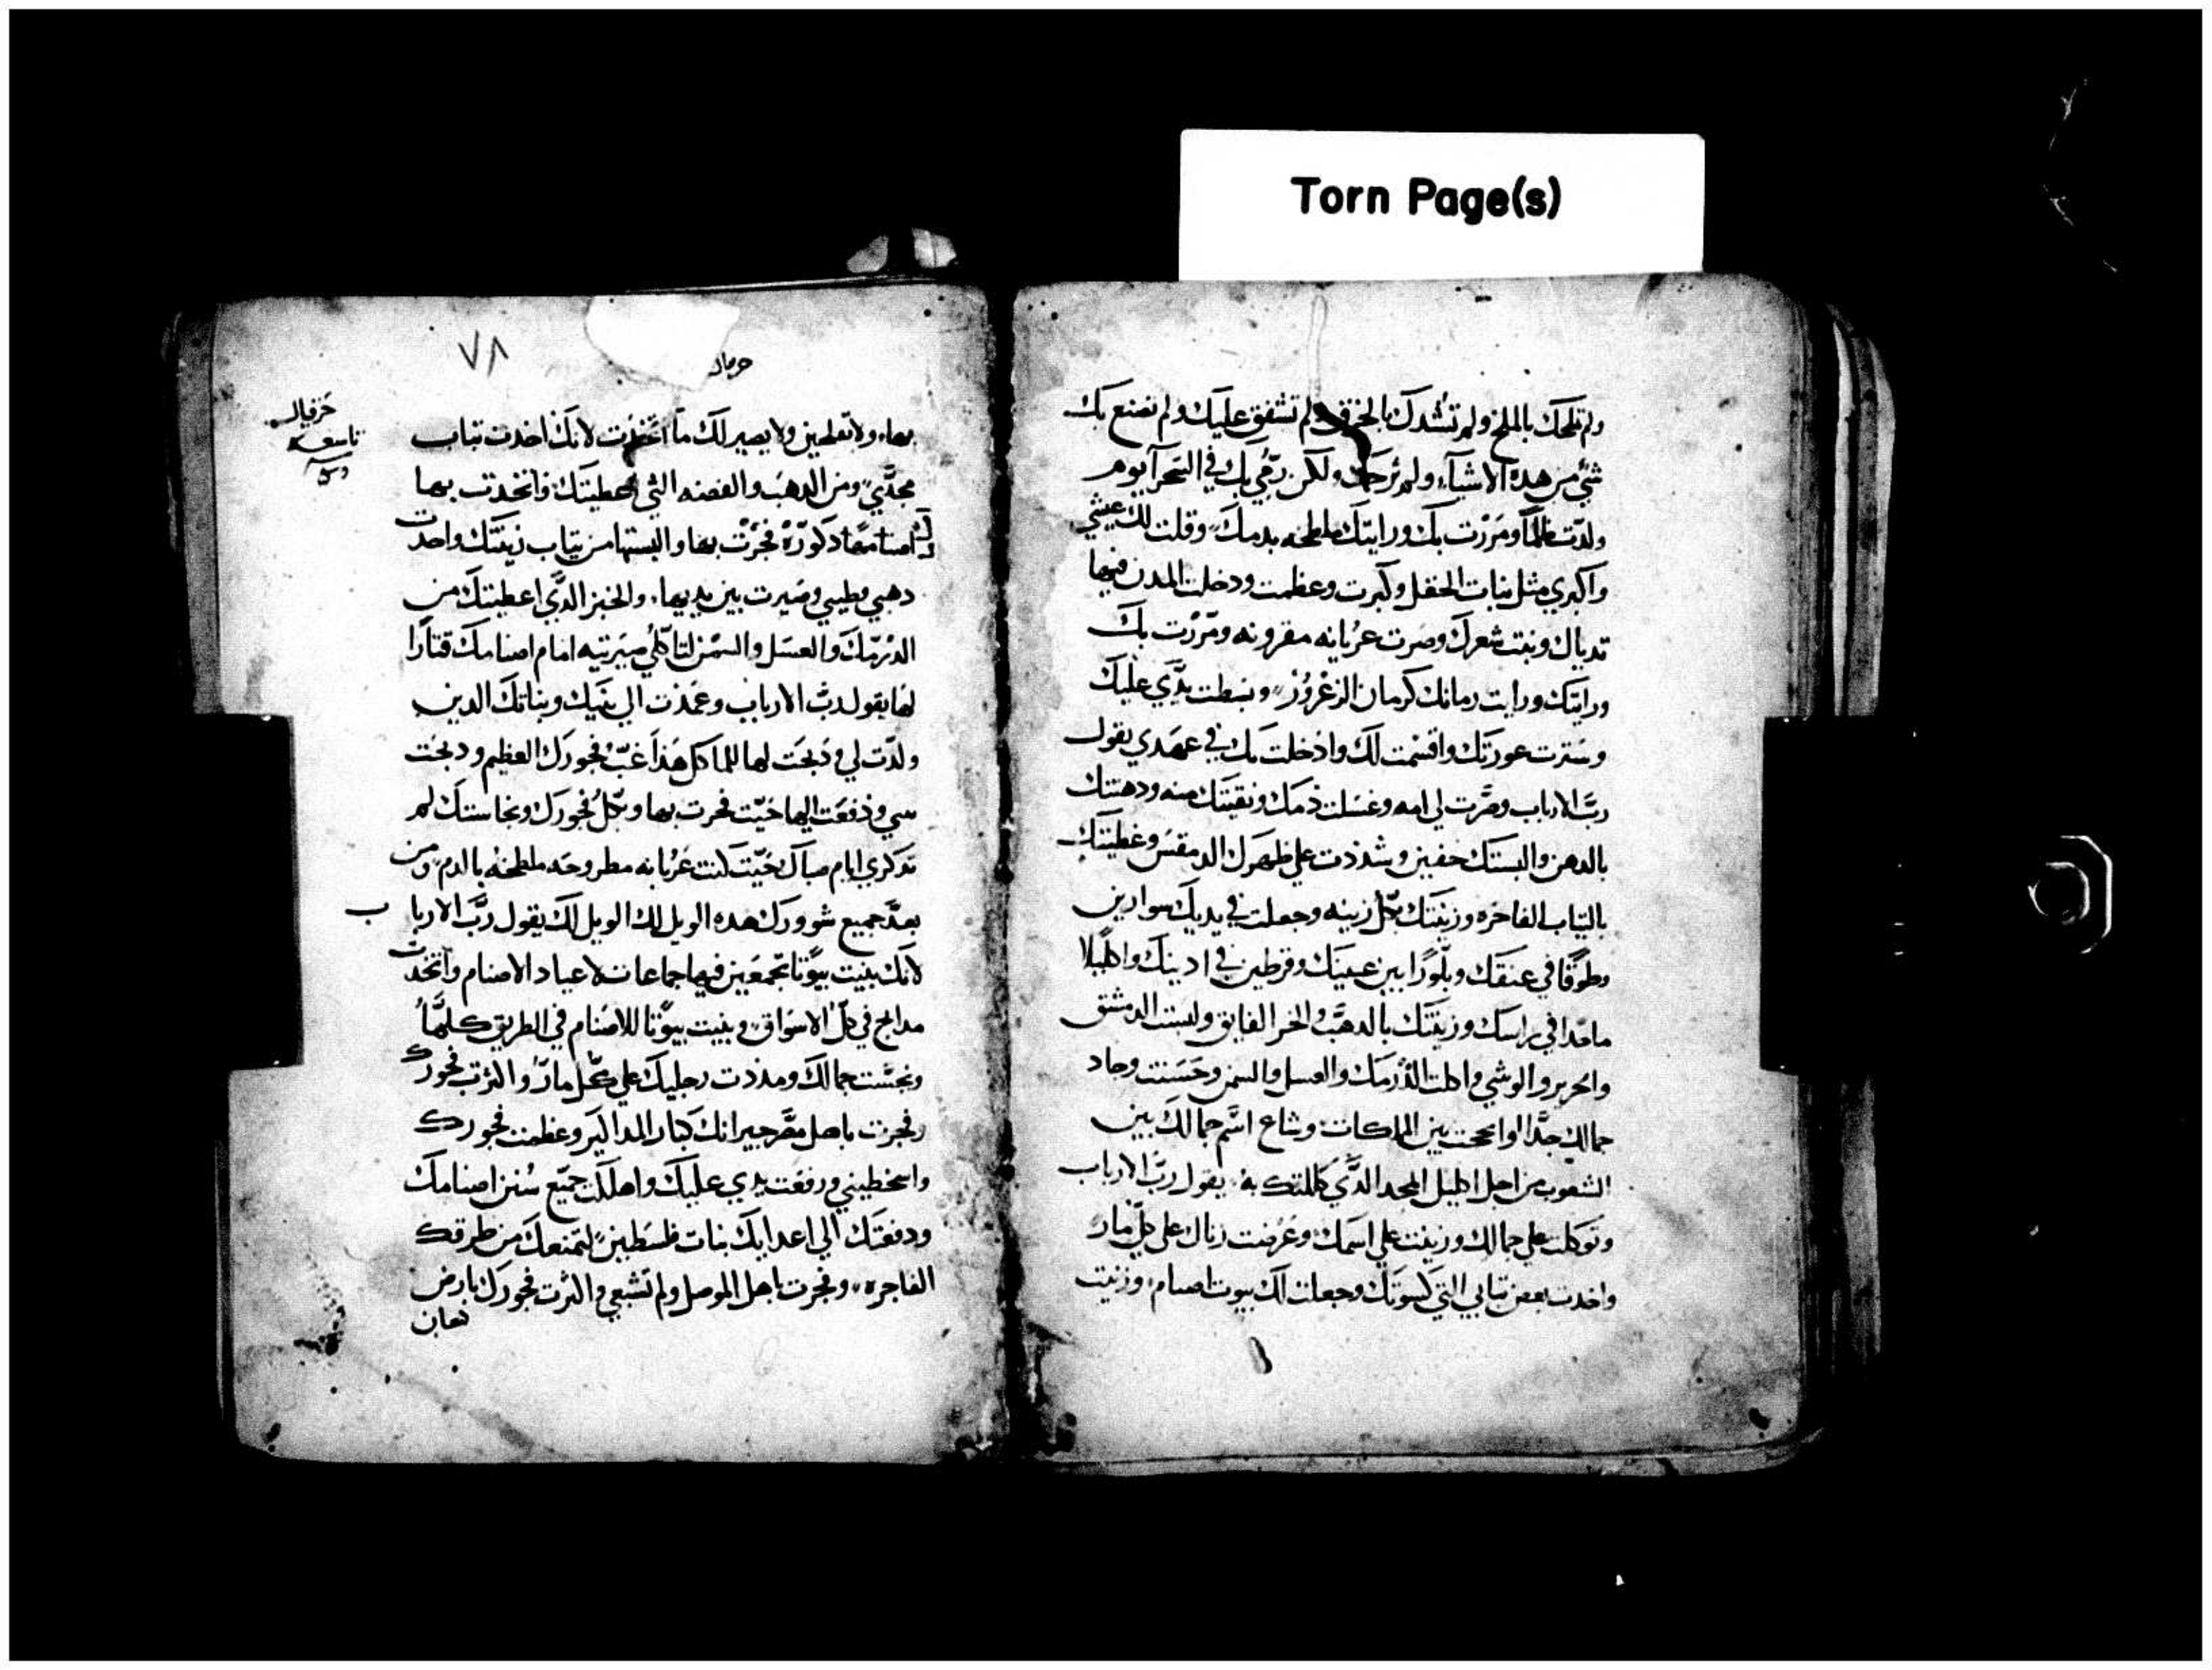 Torn Page(s)
ولم تملحك بالملح ولم تشدك بالخرق ولم تشفق عليك ولم تصنع بك
شي من هده الاشيآء ولم ترحمك ولكن رمي بك في الصحرآ يوم
ولدت ظلمًا ومررت بك ورايتك ملطخه بدمك وقلت لك عيشي
واكبري مثل نبات الحقل وكبرت وعظمت ودخلت المدن فيها
تدياك ونبت شعرك وصرت عريانه مفرونه ومررت بك
ورايتك ورايت رمانك كرمان الزغرور وبسطت يدي عليك
وسترت عورتك واقسمت لك وادخلت بك في عهدي يقول
رب الارباب وصرت لي امه وغسلت دمك ونقيتك منه ودهنتك
بالدهن والبستك خفين وشددت علي ظهرك الدمقس وغطيتك
بالتياب الفاخره وزينتك بكل زينه وجعلت في يديك سوارين
وطوقًا في عنقك وبلورًا بين عينيك وقرطين في ادينك واكليلا
ماجدا في راسك وزينتك بالدهب والخز الفايق ولبست الدمشق
والحرير والوشي واكلت الدرمك والعسل والسمن وحسنت وجاد
جمالك جدًا وانجحت بين الملكات وشاع اسم جمالك بين
الشعوب من اجل اكليل المجد الدي كللتك به يقول رب الارباب
وتوكلت علي جمالك وزنيت علي اسمك وعرضت زناك علي كل مار
واخدت بعض تيابي التي كسوتك وجعلت لك بيوت اصنام وزنيت
٧٨
حزقيال
تاسعه
بها ولا تفلحين ولا يصير لك ما اتخدت لانك اخدت تياب
مجدي ومن الدهب والفضه التي اعطيتك فاتخدت بها
لك اصنامًا دكوره فجرت بها والبستها من تياب زينتك واخدت
دهني وطيبي وصيرت بين يديها والخبز الدي اعطيتك من
الدرمك والعسل والسمن لتاكلي صيرتيه امام اصنامك قتارًا
لها يقول رب الارباب وعمدت الي بنيك وبناتك الدين
ولدت لي ودبحت لها للماكل هدا غب فجورك العظيم ودبحت
بني ودفعت اليها حيت فجرت بها وبكل فجورك ونجاستك لم
تدكري ايام صباك حيت كنت عريانه مطروحه ملطخه بالدم ومن
بعد جميع شرورك هده الويل لك الويل لك يقول رب الاربا ب
لانك بنيت بيوتا تجمعين فيها جماعات لاعياد الاصنام واتخدت
مدابح في كل الاسواق وبنيت بيوتا للاصنام في الطريق كلها
ونجست جمالك ومددت رجليك علي كل مار واكترت فجورك
وفجرت باهل مصر جيرانك كبار المداكير وعظمت فجورك
واسخطتيني ورفعت يدي عليك واهلكت جميع سنن اصنامك
ودفعتك الي اعدايك بنات فلسطين لتمنعك من طرقك
الفاجره وفجرت باهل الموصل ولم تشبعي واكترت فجورك بارض